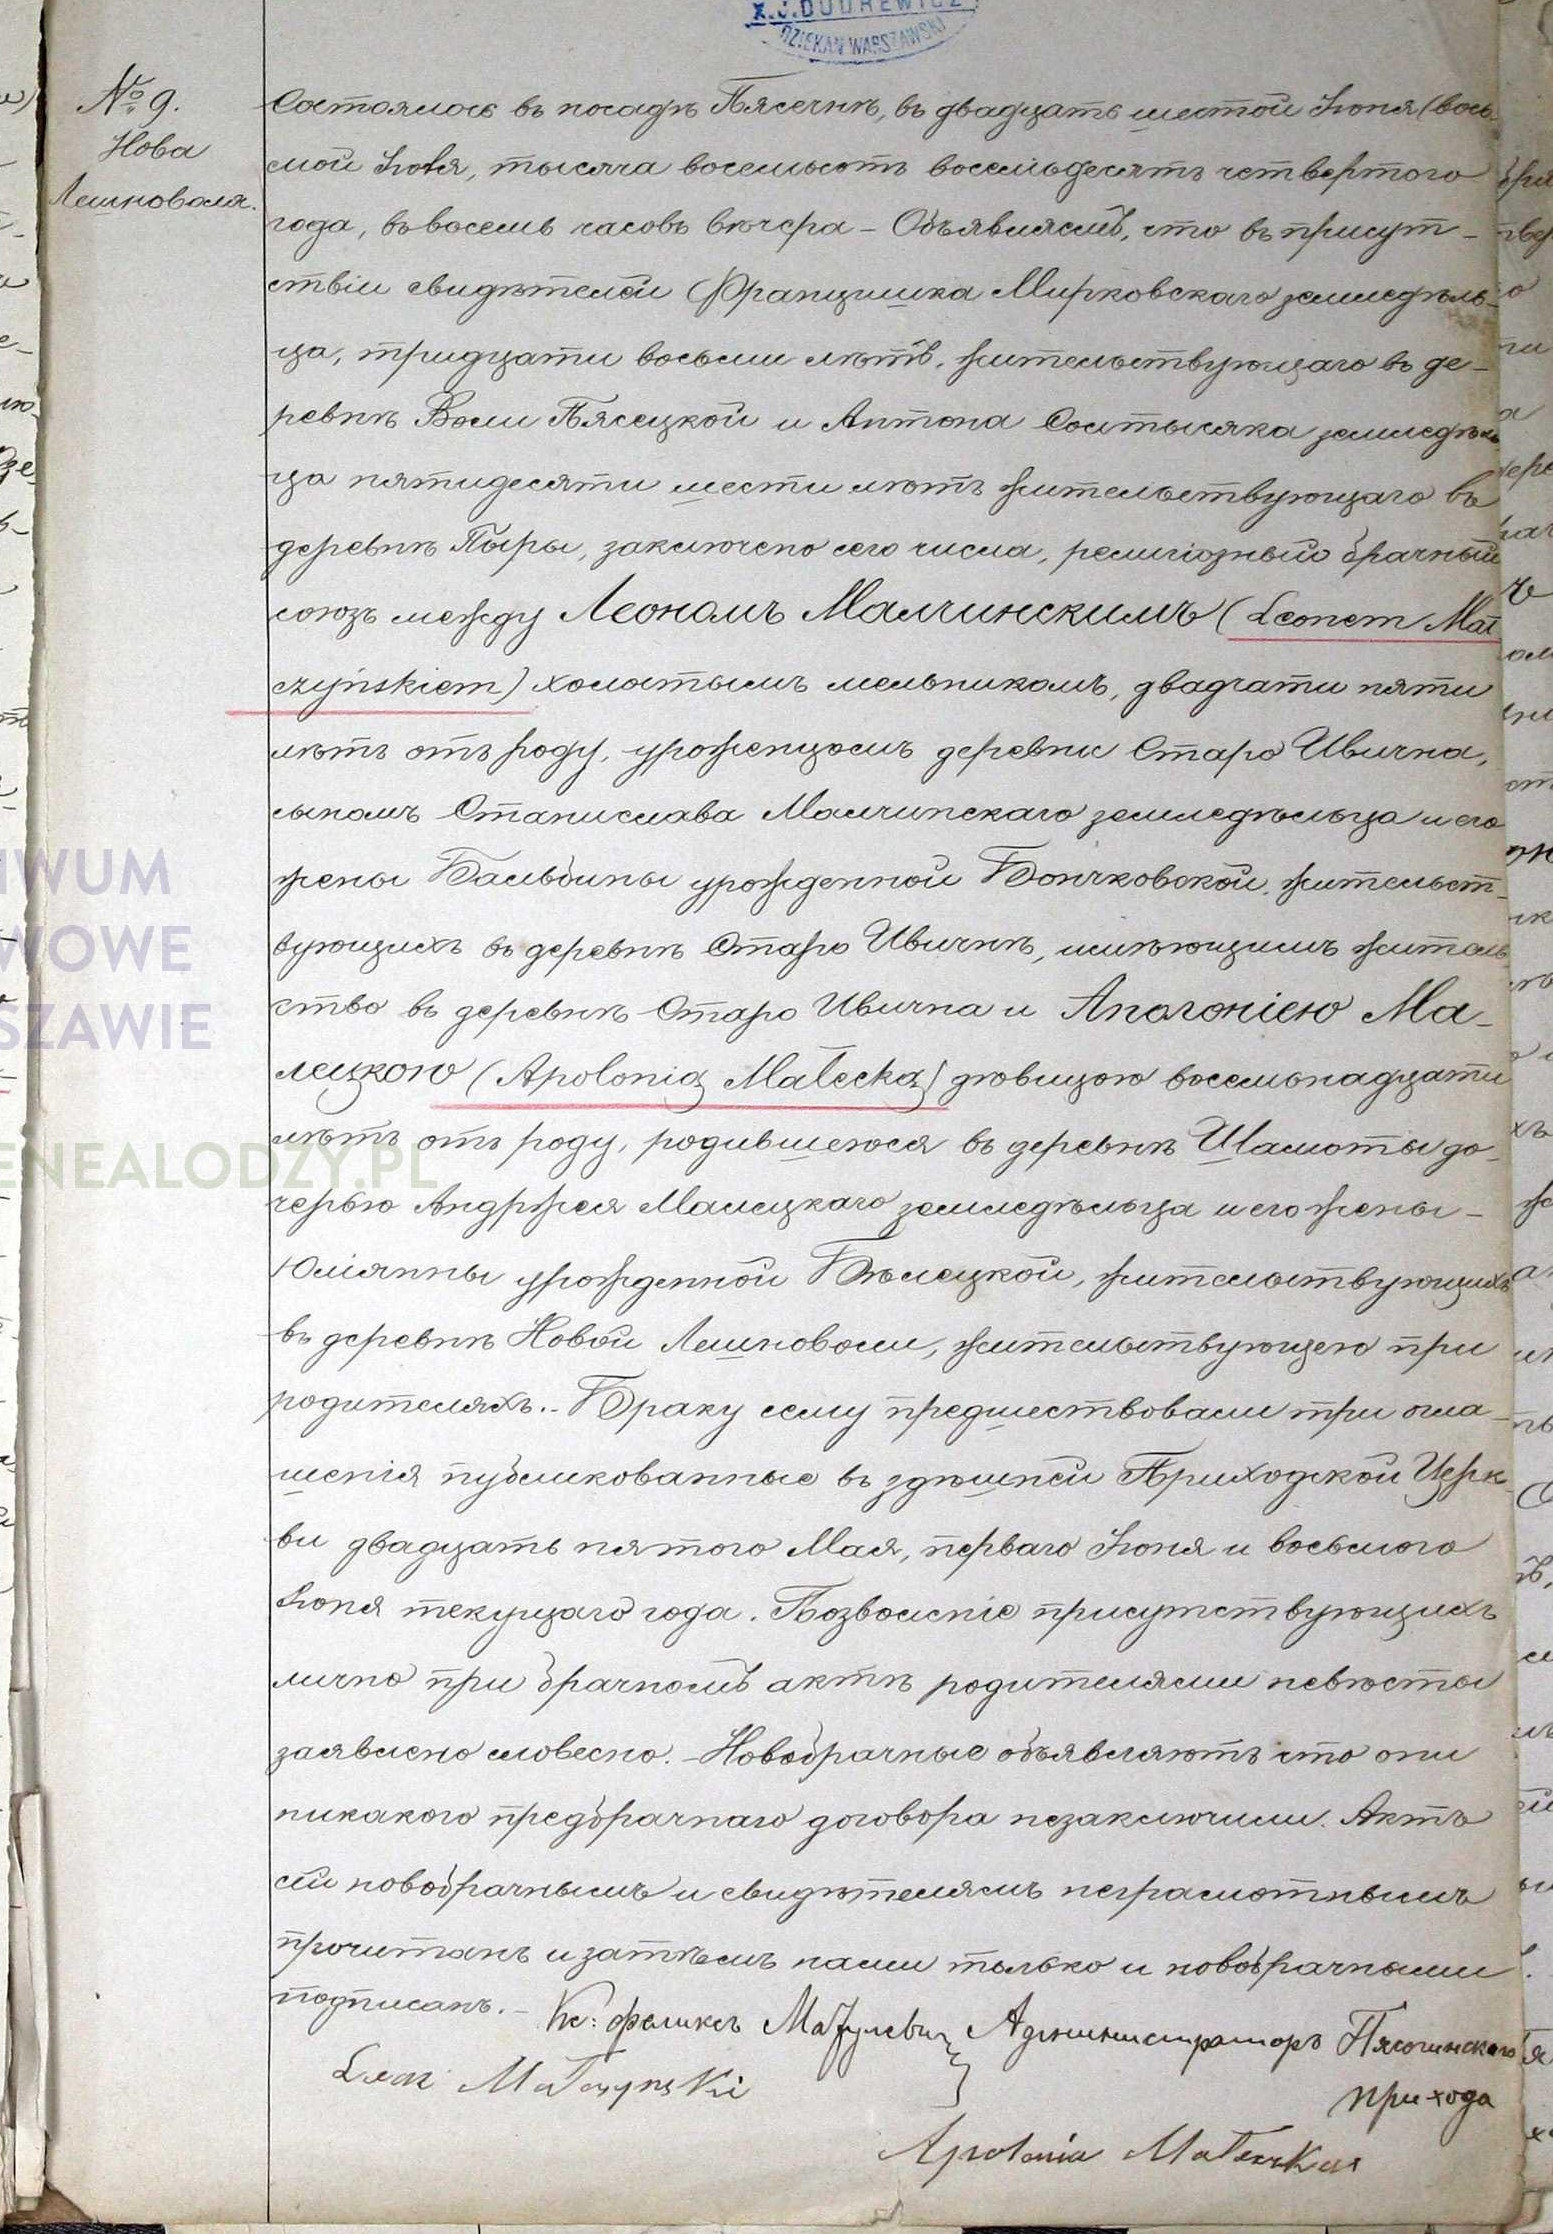 X.J.DUDREWICZ
DZIEKAN WARSZAWSKI
№ 9.
Нова
Лешноволя.
Состоялось въ посадѣ Пясечнѣ, въ двадцать шестой Іюня (вось-
мой Іюля, тысяча восемьсотъ восемьдесятъ четвертого
года, въ восемь часовъ вѣчера – Объявляемъ, что въ присут-
ствіи свидѣтелей Францишка Мирковскаго земледѣль-
ца, тридцати восьми лѣтъ, жительствующаго въ де-
ревнѣ Воли Пясецкой и Антона Солтысяка земледѣль
ца пятидесяти шести лѣтъ жительствующаго въ
деревнѣ Пыры, заключено сего числа, религіозный брачный
союзъ между Леономъ Малчинскимъ (Leonem Mał
czyńskiem) холостымъ мельникомъ, двадчати пяти
лѣтъ отъ роду, урожепцомъ деревни Старо Ивична,
сыномъ Станислава Малчинскаго земледѣльца и его
жены Бальбины урожденной Бончковской, жительст-
вующихъ въ деревнѣ Старо Ивичнѣ, имѣющимъ житель
ство въ деревнѣ Старо Ивична и Аполоніею Ма-
лецкою (Apolonią Małecką) дѣвицою восемьнадцати
лѣтъ отъ роду, родившеюся въ деревнѣ Шамоты до-
черью Анджея Малецкаго земледѣльца и его жены –
Юліянны урожденной Бѣлецкой, жительствующихъ
въ деревнѣ Новой Лешноволи, жительствующею при
родителяхъ. – Браку сему предшествовали три огла-
шенія публикованные въ здѣшней Приходской Церк-
ви двадцать пятого Мая, перваго Іюня и восьмого
Іюня текущаго года. Позволеніе присутствующихъ
лично при брачномъ актѣ родителями невѣсты
заявлено словесно. – Новобрачные объявляютъ что они
никакого предбрачнаго договора незаключили. Актъ
сей новобрачнымъ и свидѣтелямъ неграмотнымъ
прочитанъ и затѣмъ нами только и новобрачными
подписанъ. – Кс: Феликсъ Администраторъ Пясечинскаго
прихода
Leon Małczyński
Apolonia Małecka
IWUM
WOWE
SZAWIE
ENEALODZY.PL